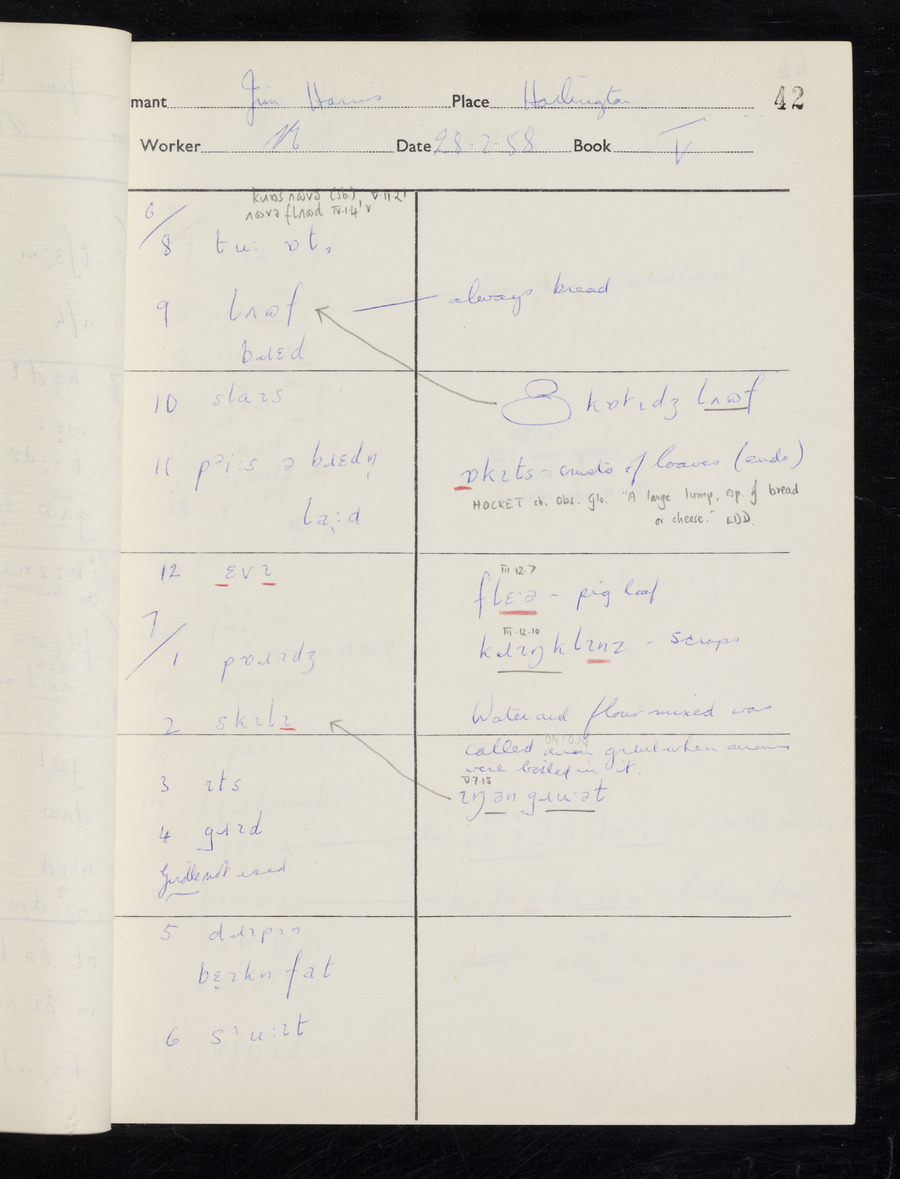 mant Jim Harris Place Harlington 42
Worker Date 28.2.58 Book V
6/
8 tu: ɒt,
9 lʌɷf always bread
bɹɛd
10 slaɪs kɒtɪdʒ lʌɷf
11 pəi:s ə bɹɛdn̩ ɒkɪts - crusts of loaves (ends)
laɪ:d HOCKET sb. Obs. Glo. "A large lump, esp. of bread
or cheese." EDD.
12 ɛvɪ III.12.7
flɛ·ə - pig leaf
7/ III.12.10
1 pɒɹɪdʒ kɹɪŋklɪnz - scraps
2 skɪlɪ Water and flour mixed was
called gruel when
were boiled in it.
3 ɪts V.7.15
ɪŋən gɹu·ət
4 gɹɪd
Girdle not used
5 dɹɪpɪn
bɛɪkn fat
6 s¹u:ɪt